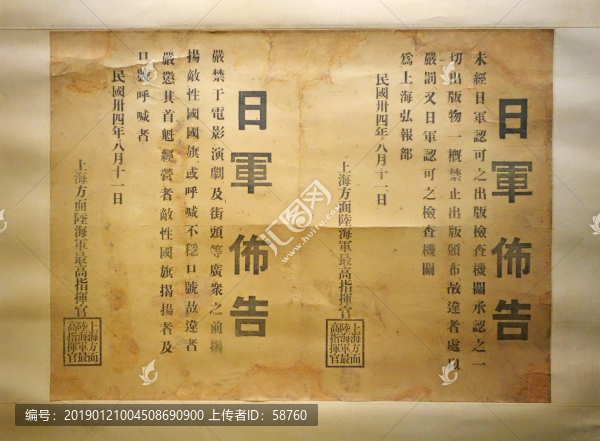 日軍佈告
未經日軍認可之出版檢查機關承認之一
切出版物一概禁止出版頒布故違者處以
嚴罰又日軍認可之檢查機關
爲上海弘報部
民國卅四年八月十一日
上海方面陸海軍最高指揮官
上海方面
陸海軍最
高指揮官
日軍佈告
嚴禁于電影演劇及街頭等廣衆之前揭
揚敵性國國旗或呼喊不穩口號故違者
嚴懲其首魁經營者敵性國旗揭揚者及
口號呼喊者
民國卅四年八月十一日
上海方面陸海軍最高指揮官
上海方面
陸海軍最
高指揮官
汇图网
www.huitu.com
编号：20190121004508690900 上传者ID：58760